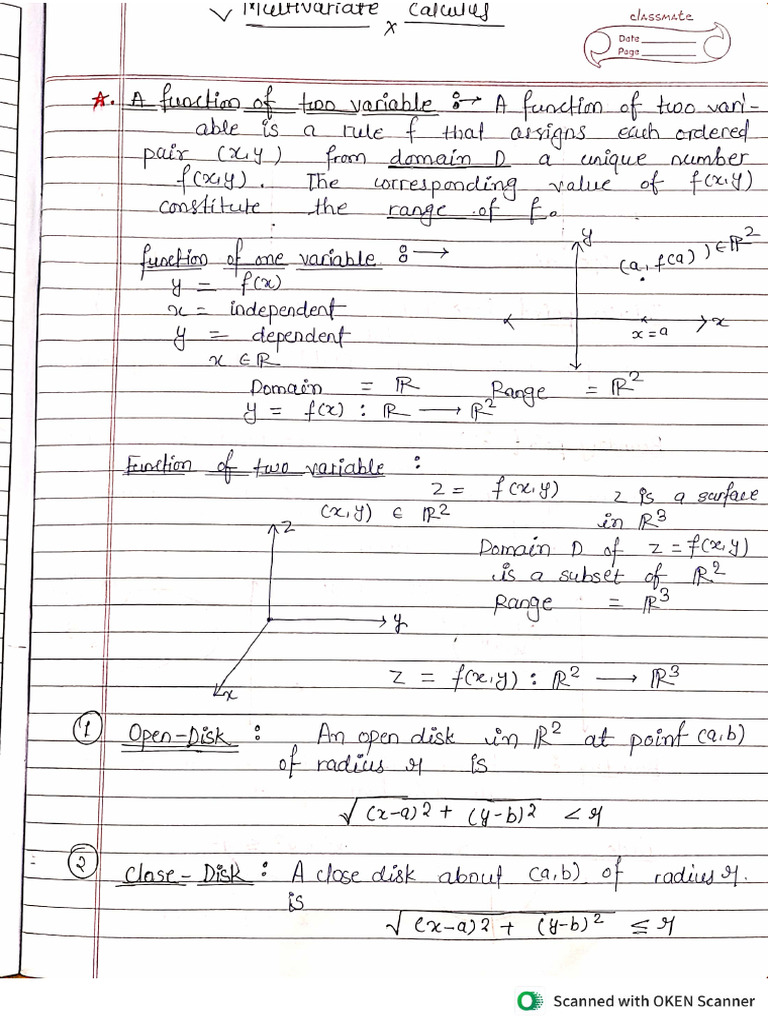 ✓ Multivariate Calculus
x
classmate
Date
Page
A. A function of two variable :→ A function of two vari-
able is a rule f that assigns each ordered
pair (x,y) from domain D a unique number
f(x,y). The corresponding value of f(x,y)
constitute the range of f.
function of one variable :→
y = f(x)
x = independent
y = dependent
x ∈ ℝ
y
(a, f(a)) ∈ ℝ²
x
x=a
Domain = ℝ Range = ℝ²
y = f(x) : ℝ → ℝ²
Function of two variable :
z = f(x,y) z is a surface
(x,y) ∈ ℝ² in ℝ³
z
Domain D of z = f(x,y)
is a subset of ℝ²
Range = ℝ³
y
x
z = f(x,y) : ℝ² → ℝ³
1 Open-Disk : An open disk in ℝ² at point (a,b)
of radius r is
√(x-a)2 + (y-b)² < r
2 Close-Disk : A close disk about (a,b) of radius r.
is
√(x-a)2 + (y-b)² ≤ r
Scanned with OKEN Scanner